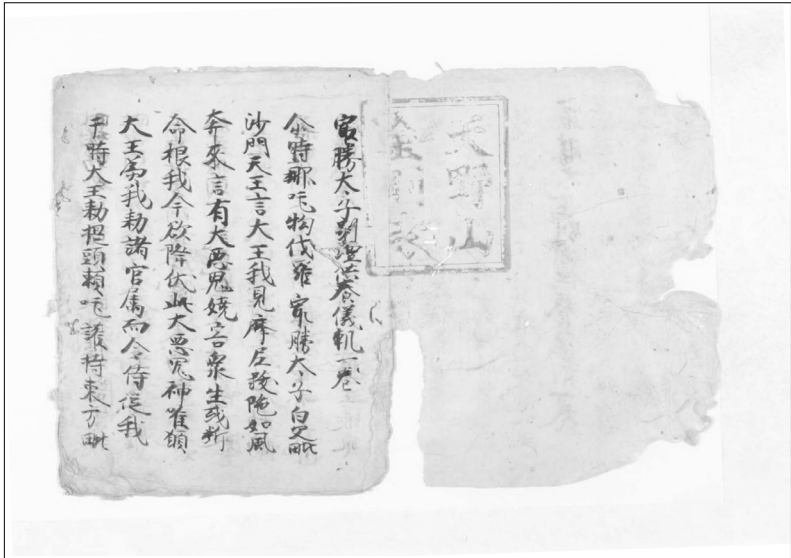 天野山
金剛寺
冣勝太子別壇供養儀軌一卷
尒時那吒拘伐羅冣勝太子白父毗
沙門天王言大王我見摩尼跋陁如風
奔來言有大悪鬼嬈害衆生或断
命根我今欲降伏此大悪鬼神唯願
大王為我勅諸官属而令侍従我
于時大王勅提頭頼吒護持東方毗